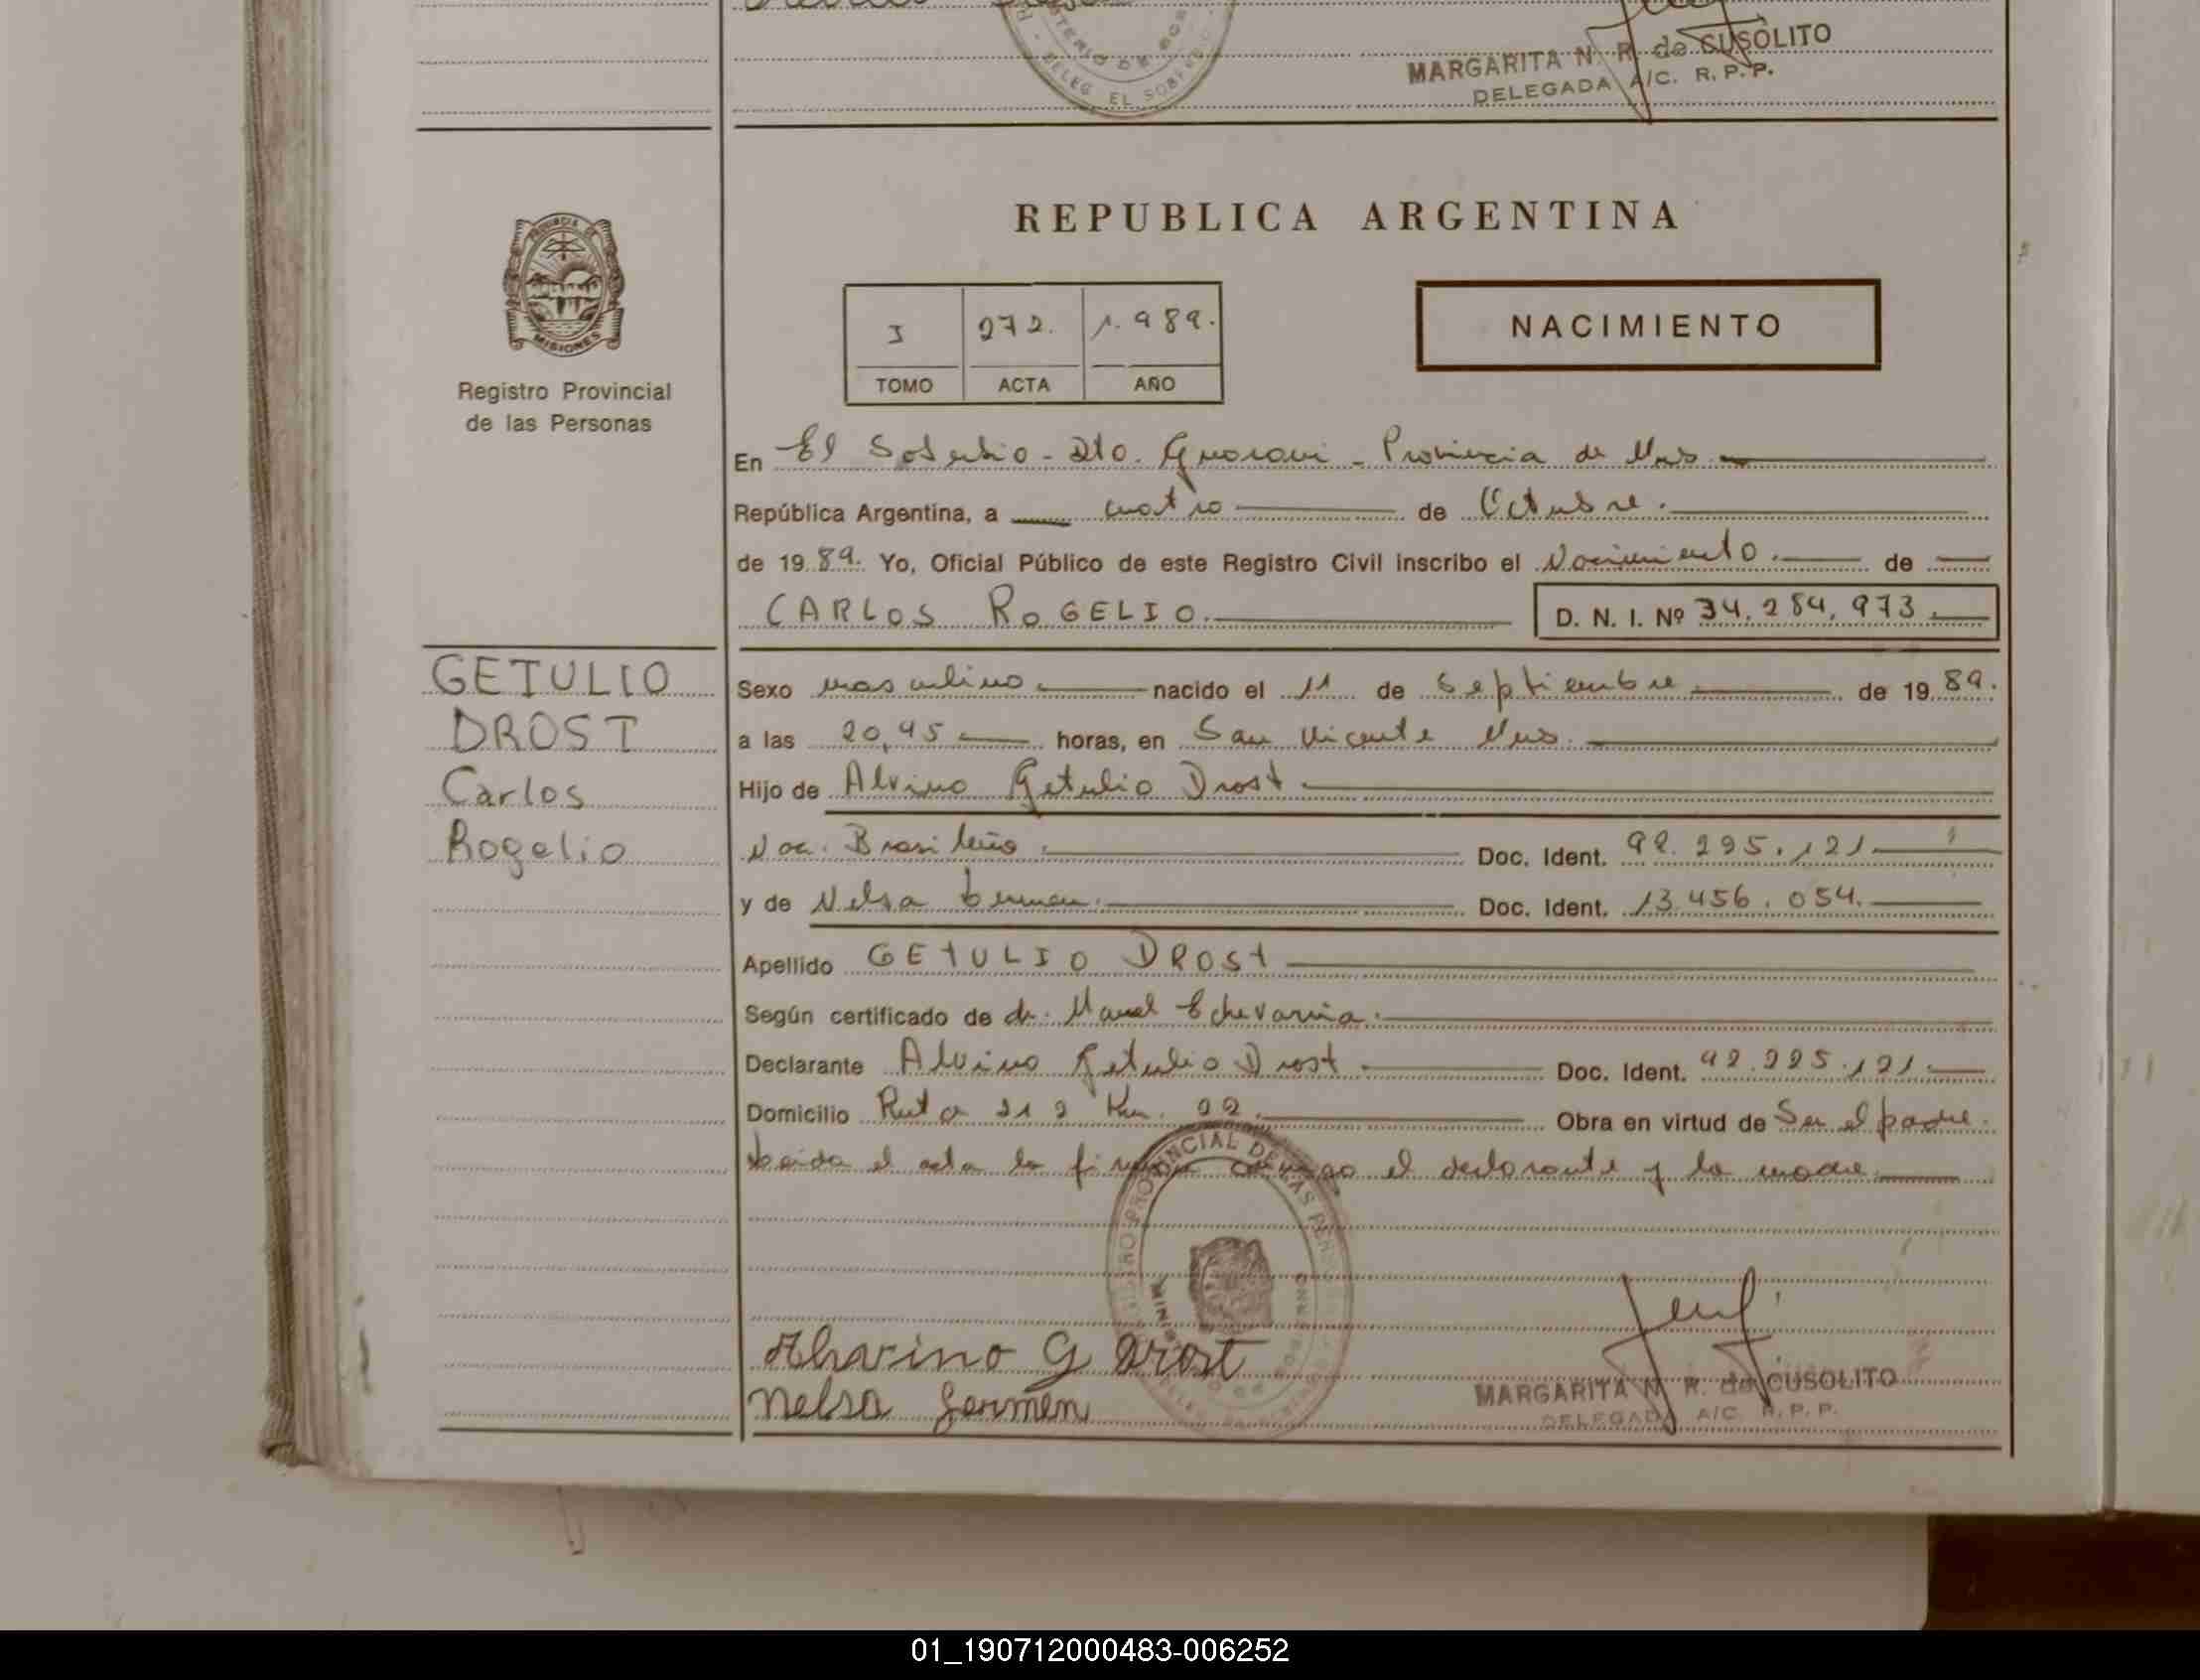 MARGARITA N. R. de CUSOLITO
DELEGADA A/C. R. P. P.
PROVINCIA DE
MISIONES
Registro Provincial
de las Personas
REPUBLICA ARGENTINA
I 272. 1.989.
TOMO ACTA AÑO
NACIMIENTO
En El Soberbio - Dto. Guarani - Provincia de Mns.
República Argentina, a cuatro de Octubre.
de 19 89. Yo, Oficial Público de este Registro Civil inscribo el Nacimiento. de
CARLOS ROGELIO. D. N. I. Nº 34.284.973.
GETULIO
DROST
Carlos
Rogelio
Sexo masculino nacido el 11 de Septiembre de 19 89.
a las 20,45 horas, en San Vicente Mns.
Hijo de Alvino Getulio Drost
Nac. Brasileño. Doc. Ident. 92.295.121
y de Nelsa Doc. Ident. 13.456.054.
Apellido GETULIO DROST
Según certificado de dr. Manuel Echevarria.
Declarante Alvino Getulio Drost Doc. Ident. 92.295.121.
Domicilio Ruta 212 Km. 22. Obra en virtud de Ser el padre.
Leida el acta la firman conmigo el declarante y la madre
Alvarino G Drost
Nelsa Germen
MARGARITA N. R. de CUSOLITO
DELEGADA A/C R. P. P.
01_190712000483-006252